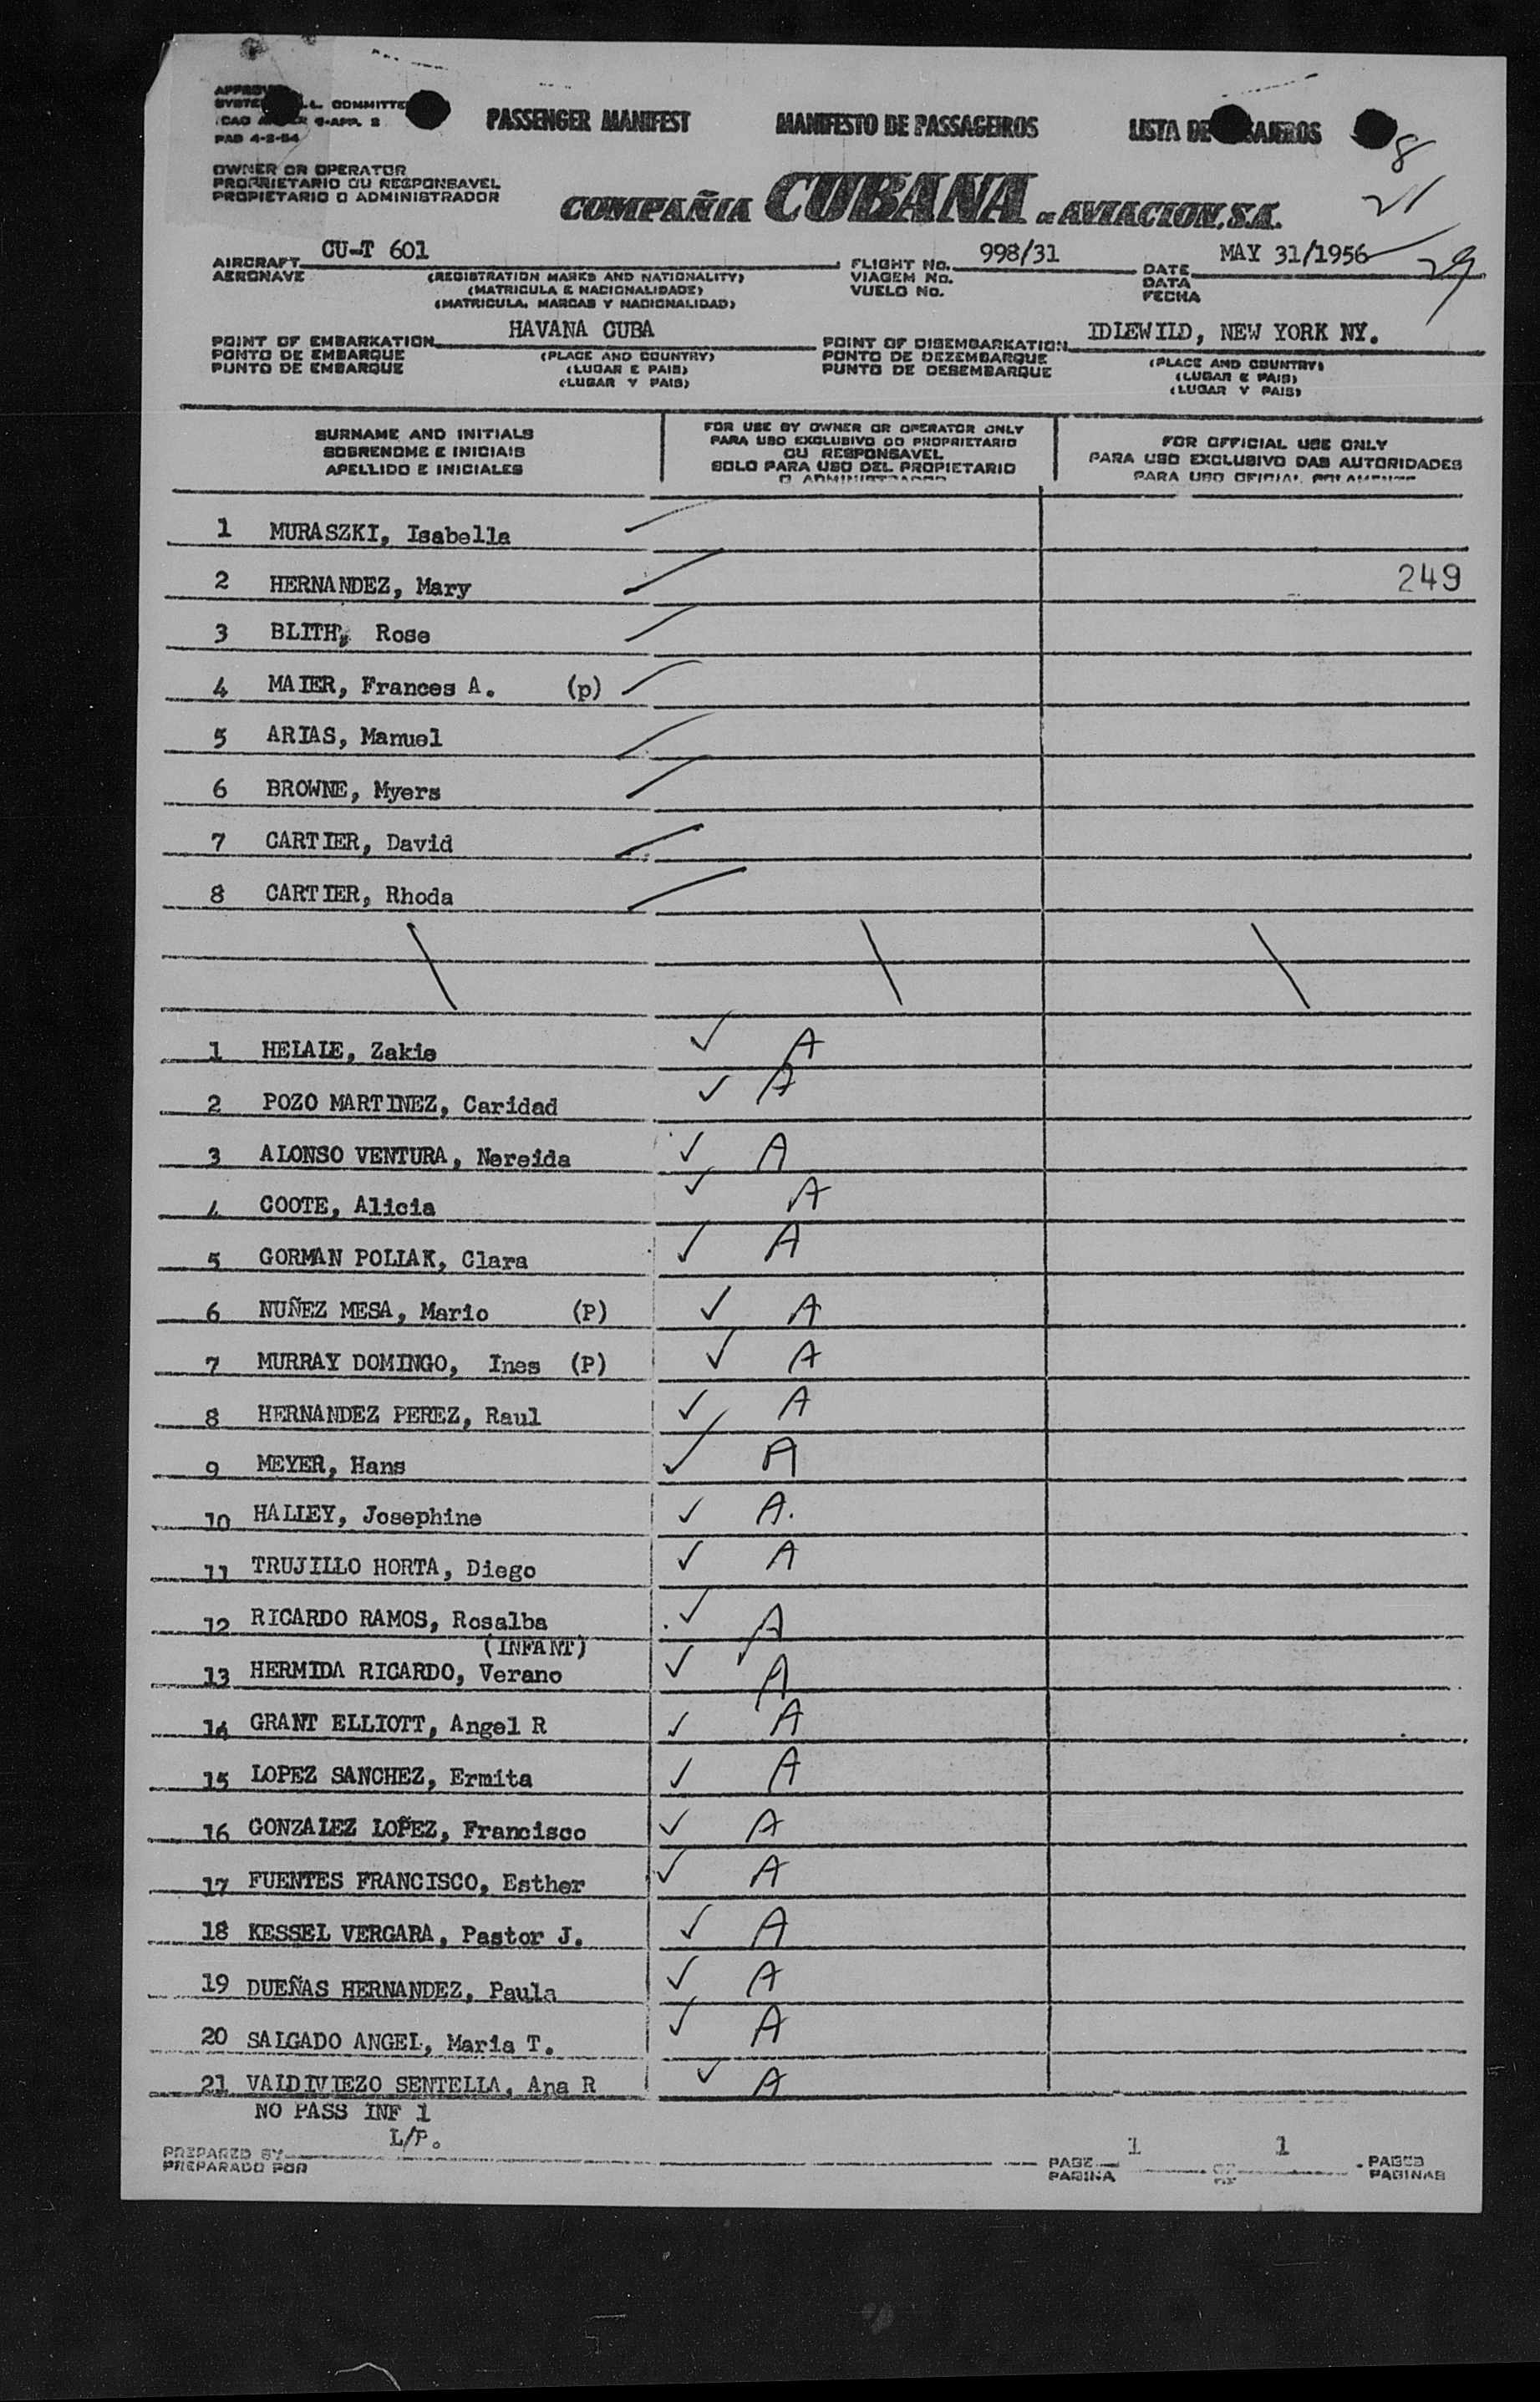 PASSENGER MANIFEST MANIFESTO DE PASSAGEIROS LISTA DE
COMMITTE
PAD 4-2-54
8
21
29
OWNER OR OPERATOR
PROPRIETARIO OU RESPONSAVEL
PROPIETARIO O ADMINISTRADOR
COMPAÑIA CUBANA DE AVIACION, S.A.
AIRCRAFT CU-T 601 FLIGHT No. 998/31 DATE MAY 31/1956
AERONAVE (REGISTRATION MARKS AND NATIONALITY) VIAGEM No. DATA
(MATRICULA E NACIONALIDADE) VUELO No. FECHA
(MATRICULA, MARCAS Y NACIONALIDAD)
POINT OF EMBARKATION HAVANA CUBA POINT OF DISEMBARKATION IDLEWILD, NEW YORK NY.
PONTO DE EMBARQUE (PLACE AND COUNTRY) PONTO DE DEZEMBARQUE (PLACE AND COUNTRY)
PUNTO DE EMBARQUE (LUGAR E PAIS) PUNTO DE DESEMBARQUE (LUGAR E PAIS)
(LUGAR Y PAIS) (LUGAR Y PAIS)
SURNAME AND INITIALS
SOBRENOME E INICIAIS
APELLIDO E INICIALES
FOR USE BY OWNER OR OPERATOR ONLY
PARA USO EXCLUSIVO DO PROPRIETARIO
OU RESPONSAVEL
SOLO PARA USO DEL PROPIETARIO
O ADMINISTRADOR
FOR OFFICIAL USE ONLY
PARA USO EXCLUSIVO DAS AUTORIDADES
PARA USO OFICIAL SOLAMENTE
1 MURASZKI, Isabella
2 HERNANDEZ, Mary 249
3 BLITH, Rose
4 MAIER, Frances A. (p)
5 ARIAS, Manuel
6 BROWNE, Myers
7 CARTIER, David
8 CARTIER, Rhoda
1 HELALE, Zakie ✓ A
2 POZO MARTINEZ, Caridad ✓ A
3 ALONSO VENTURA, Nereida ✓ A
4 COOTE, Alicia ✓ A
5 GORMAN POLLAK, Clara ✓ A
6 NUÑEZ MESA, Mario (P) ✓ A
7 MURRAY DOMINGO, Ines (P) ✓ A
8 HERNANDEZ PEREZ, Raul ✓ A
9 MEYER, Hans ✓ A
10 HALLEY, Josephine ✓ A.
11 TRUJILLO HORTA, Diego ✓ A
12 RICARDO RAMOS, Rosalba ✓ A
(INFANT)
13 HERMIDA RICARDO, Verano ✓ A
14 GRANT ELLIOTT, Angel R ✓ A
15 LOPEZ SANCHEZ, Ermita ✓ A
16 GONZALEZ LOPEZ, Francisco ✓ A
17 FUENTES FRANCISCO, Esther ✓ A
18 KESSEL VERGARA, Pastor J. ✓ A
19 DUEÑAS HERNANDEZ, Paula ✓ A
20 SALGADO ANGEL, Maria T. ✓ A
21 VALDIVIEZO SENTELLA, Ana R ✓ A
NO PASS INF 1
L/P.
PREPARED BY PAGE 1 OF 1 PAGES
PREPARADO POR PAGINA DE PAGINAS